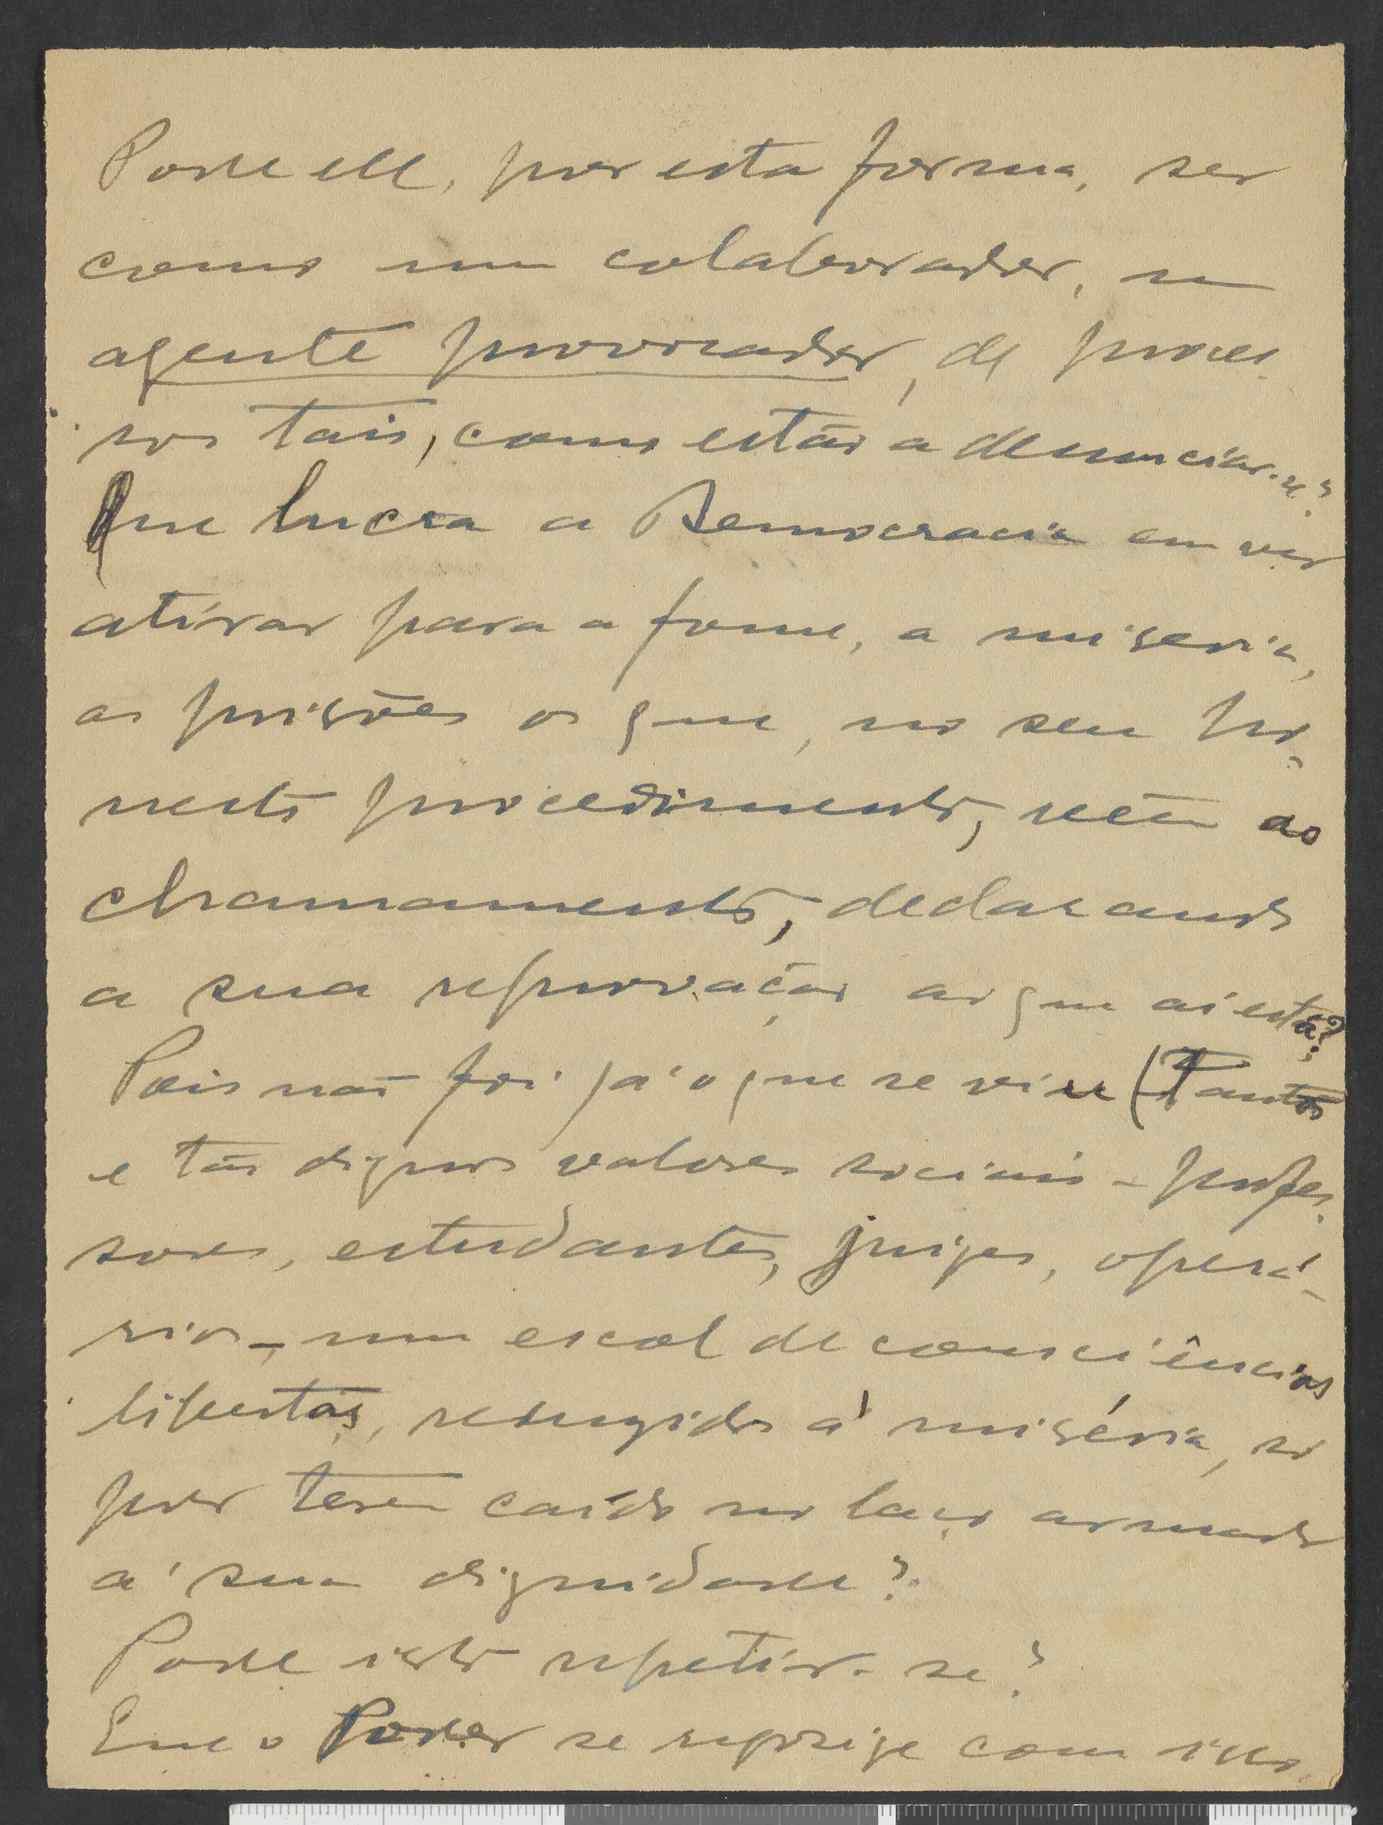 Pode ele, por esta forma, ser
como um colaborador, um
agente provocador, de proces-
sos tais, como estão a denunciar-se?
Que lucra a Democracia em ver
atirar para a fome, a miseria,
as prisões os que, no seu ho-
nesto procedimento, veem ao
chamamento, declarando
a sua reprovação ao que aí está?
Pois não foi já o que se viu (Tantos
e tão dignos valores sociais - profes-
sores, estudantes, juizes, operá-
rios -, um escol de consciências
libertas, reduzidos à miséria, só
por terem caído no laço armado
à sua dignidade?
Pode isto repetir-se?
Que o Poder se regosije com isso,